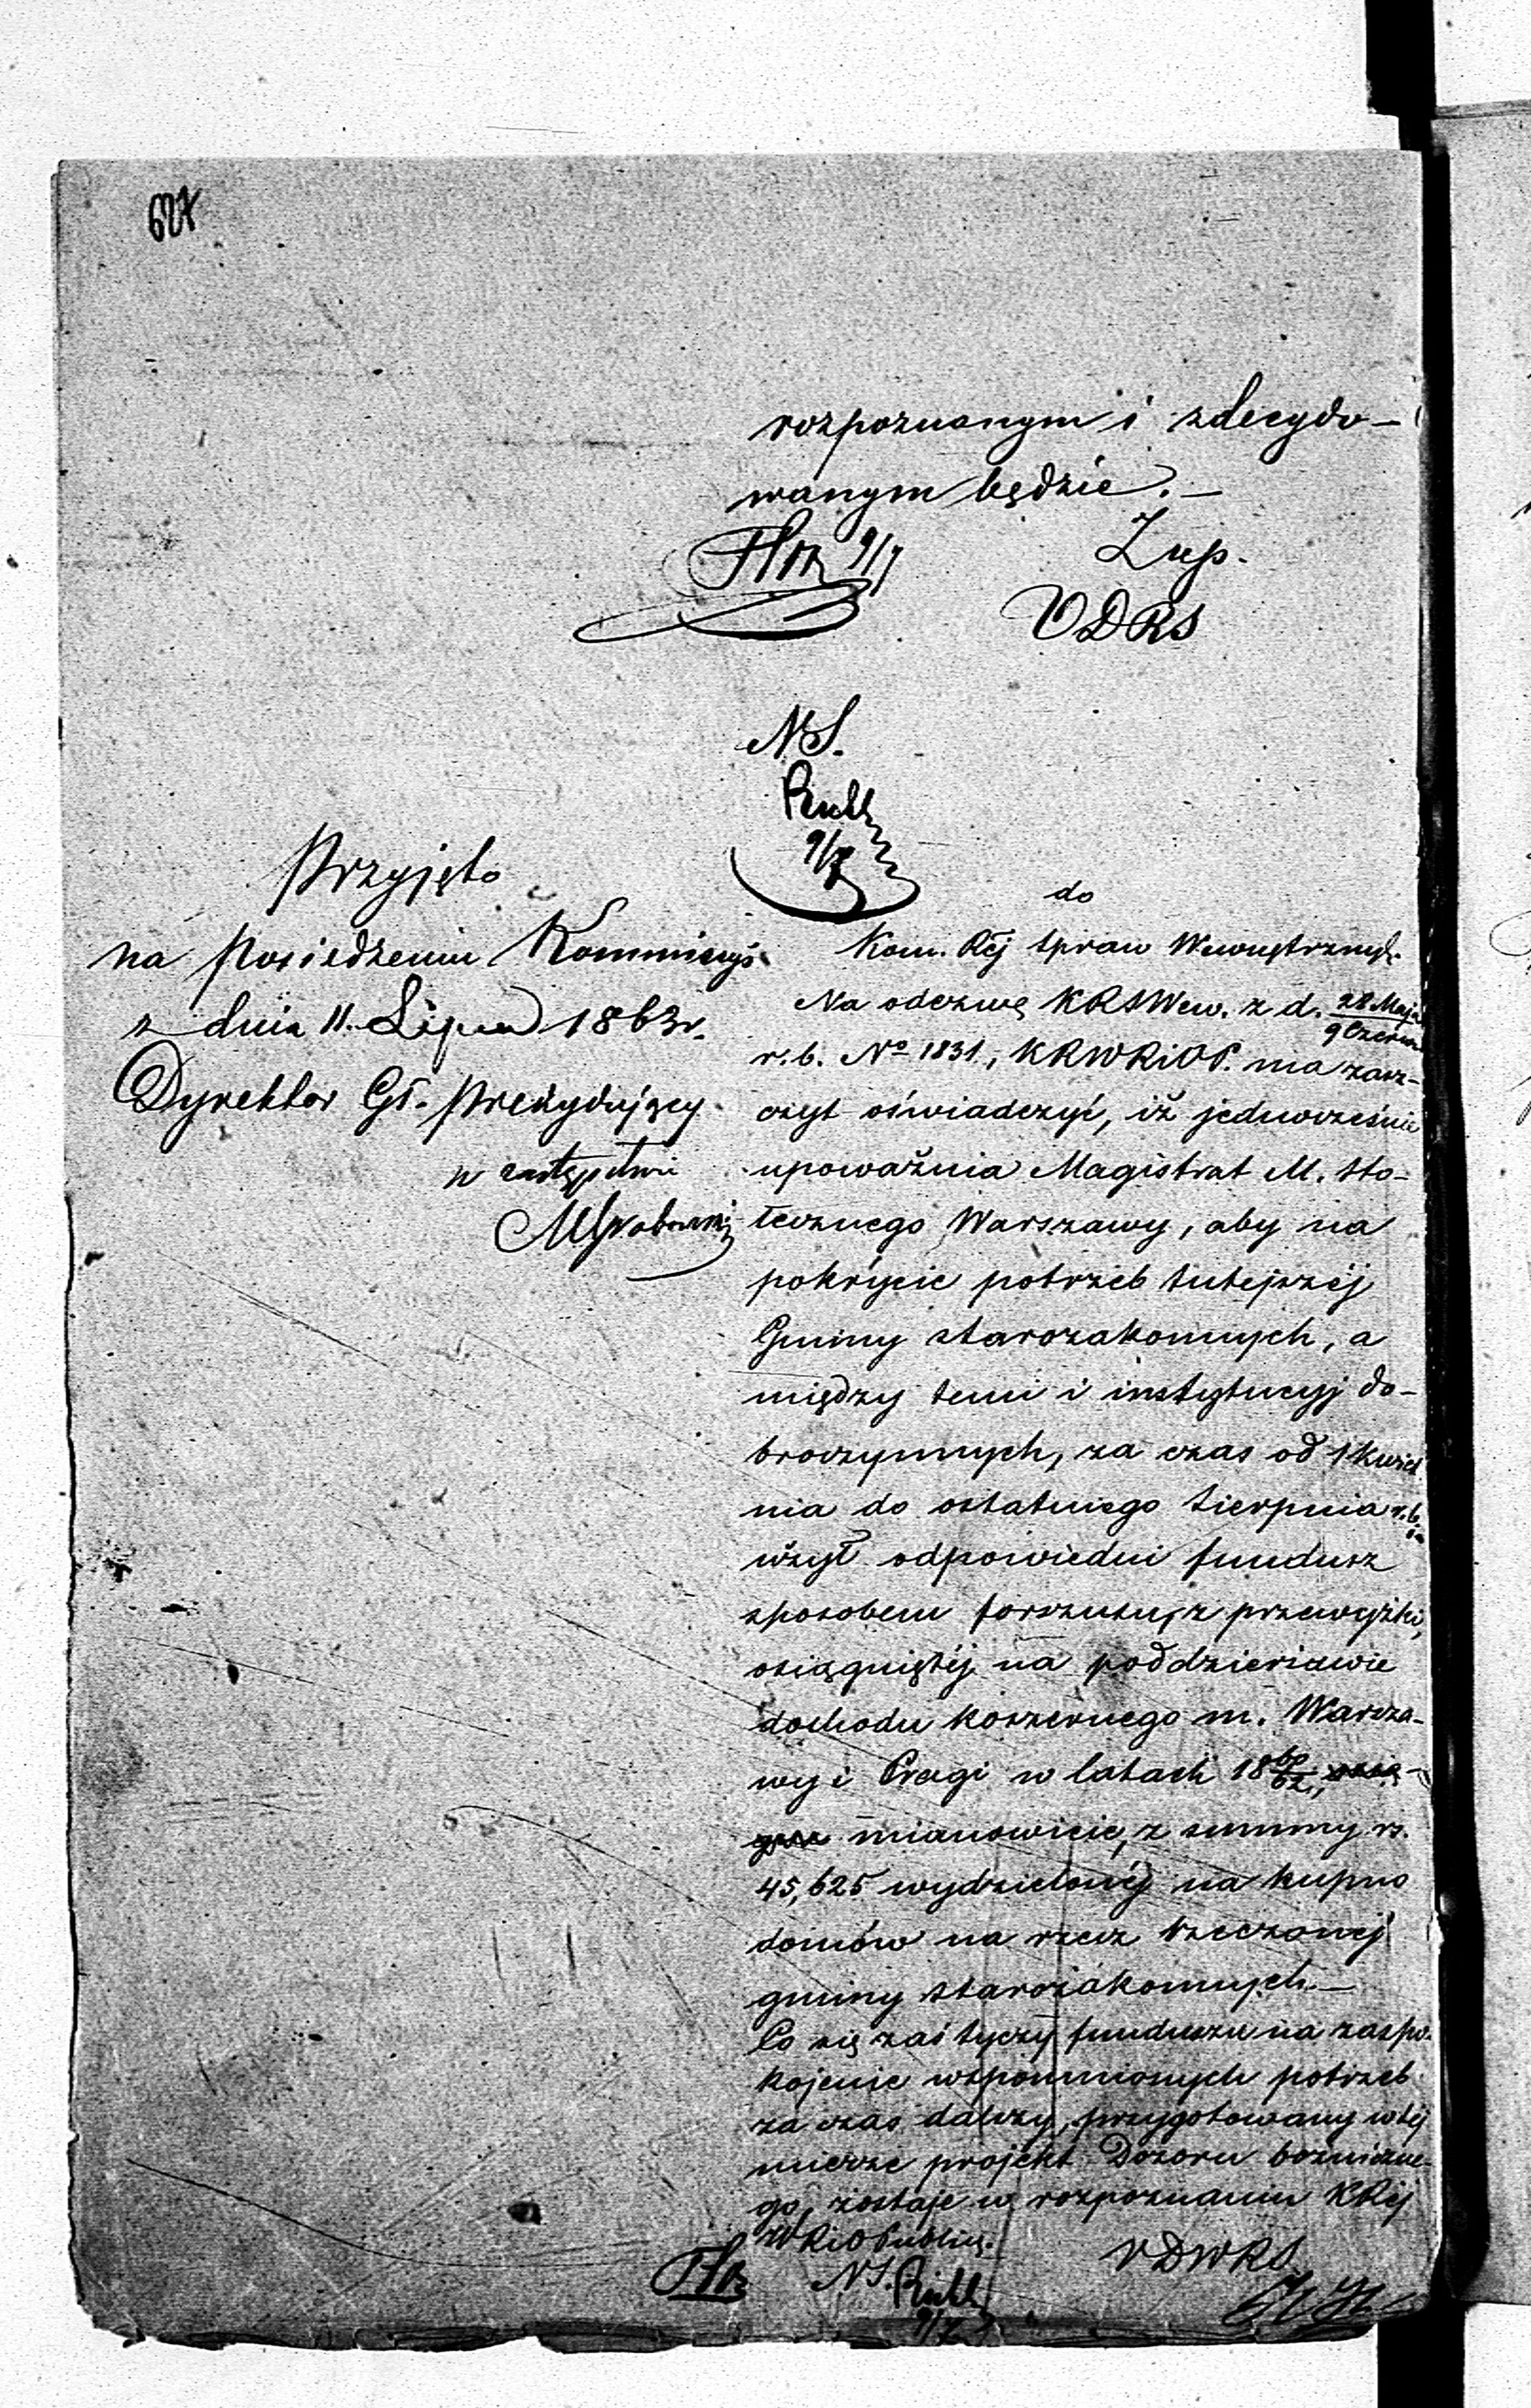 624
rozpoznanym i zdecydo-
wanym będzie. -
9/7 Zup.
VDRS
NS.
9/7
Przyjęto
na posiedzeniu Kommissyi
z dnia 11. Lipca 1863 r.
Dyrektor Gł. Prezydujący
w zastępstwie
do
Kom. Rój Spraw Wewnętrznych.
Na odezwę KRSWew. z d. 28 Maja
9 Czerwca
r. b. No 1831, KRWRiOP. ma zasz-
czyt oświadczyć, iż jednocześnie
upoważnia Magistrat M. Sto-
łecznego Warszawy, aby na
pokrycie potrzeb tutejszéj
Gminy starozakonnych, a
między temi i instytucyj do-
broczynnych, za czas od 1 Kwiet
nia do ostatniego Sierpnia r. b.
wziął odpowiedni fundusz
sposobem forszusu, z przewyżki,
osiągniętéj na poddzierżawie
dochodu koszernego m. Warsza-
wy i Pragi w latach 18 60/62,
mianowicie, z summy rs.
45,625 wydzielonéj na kupno
domów na rzecz rzeczonéj
gminy starozakonnych. -
Co się zaś tyczy funduszu na zaspo-
kojenie wspomnionych potrzeb
za czas dalszy, przygotowany w téj
mierze projekt Dozoru bożniczne-
go, zostaje w rozpoznaniu KRéj
WRiOPublicz.
NS. VDWRS
9/7